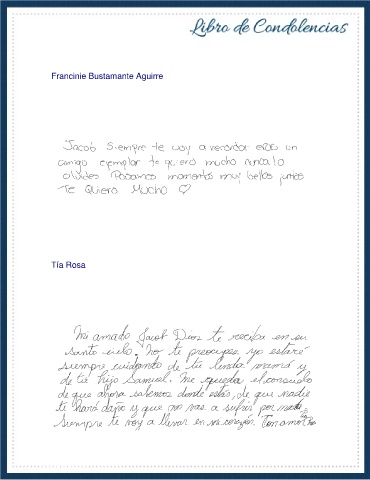 Libro de Condolencias
Francinie Bustamante Aguirre
Jacob Siempre te voy a recordar eres un
amigo ejemplar te quiero mucho nunca lo
olvides Pasamos momentos muy bellos juntos
Te Quiero Mucho ♡
Tía Rosa
Mi amado Jacob Dios te reciba en su
santo cielo. No te preocupes yo estaré
siempre cuidando de tu linda mamá y
de tu hijo Samuel. Me queda el consuelo
de que ahora sabemos donde estás, de que nadie
te hará daño y que no vas a sufrir por nada.
Siempre te voy a llevar en mi corazón Con amor